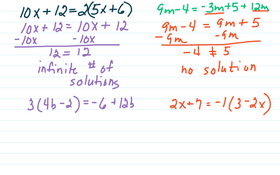 10x + 12 = 2(5x + 6)
10x + 12 = 10x + 12
-10x -10x
12 = 12
infinite # of
solutions
3(4b - 2) = -6 + 12b
9m - 4 = -3m + 5 + 12m
9m - 4 = 9m + 5
-9m -9m
-4 ≠ 5
no solution
2x + 7 = -1(3 - 2x)